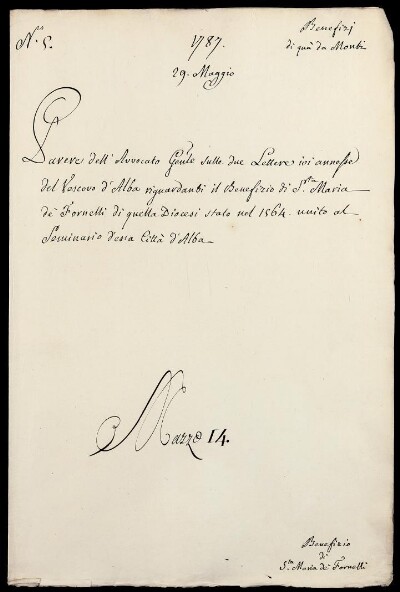 N.º 5.
1787.
29. Maggio
Benefizj
di quà da Monti
Parere dell'Avvocato Gnle sulle due Lettere ivi annesse
del Vescovo d'Alba riguardanti il Benefizio di S.ta Maria
de' Fornelli di quella Diocesi stato nel 1564. unito al
Seminario d'essa Città d'Alba
Mazzo 14.
Benefizio
di
S.ta Maria de' Fornelli